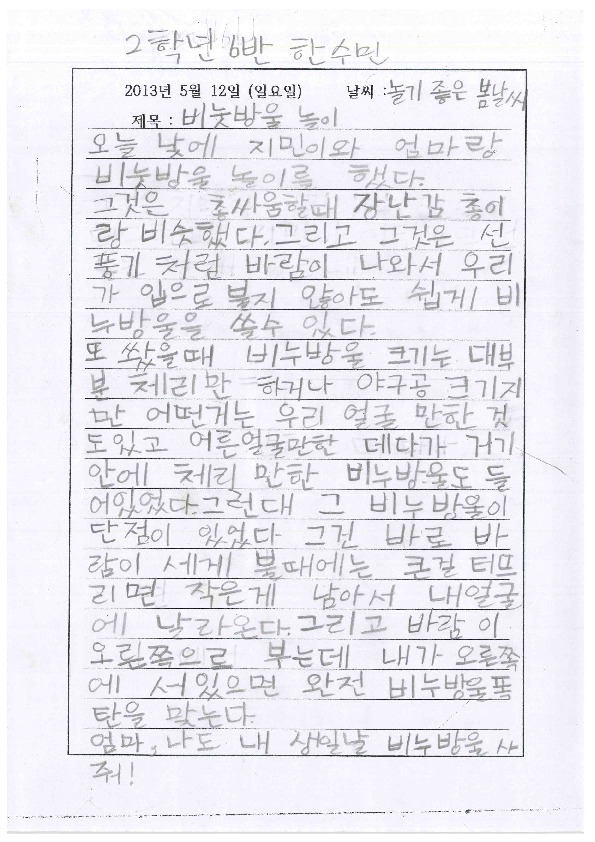 2학년 6반 한수민
2013년 5월 12일 (일요일) 날씨 : 놀기 좋은 봄날씨
제목 : 비눗방울 놀이
오늘 낮에 지민이와 엄마랑
비눗방울 놀이를 했다.
그것은 총싸움할때 장난감 총이
랑 비슷했다. 그리고 그것은 선
풍기 처럼 바람이 나와서 우리
가 입으로 불지 않아도 쉽게 비
누방울을 쏠수 있다.
또 쐈을때 비누방울 크기는 대부
분 체리만 하거나 야구공 크기지
만 어떤거는 우리 얼굴 만한 것
도있고 어른얼굴만한 데다가 거기
안에 체리 만한 비누방울도 들
어있었다. 그런대 그 비누방울이
단점이 있었다 그건 바로 바
람이 세게 불때에는 큰걸 터뜨
리면 작은게 남아서 내얼굴
에 날라온다. 그리고 바람이
오른쪽으로 부는데 내가 오른쪽
에 서있으면 완전 비누방울폭
탄을 맞는다.
엄마, 나도 내 생일날 비누방울 사
줘!